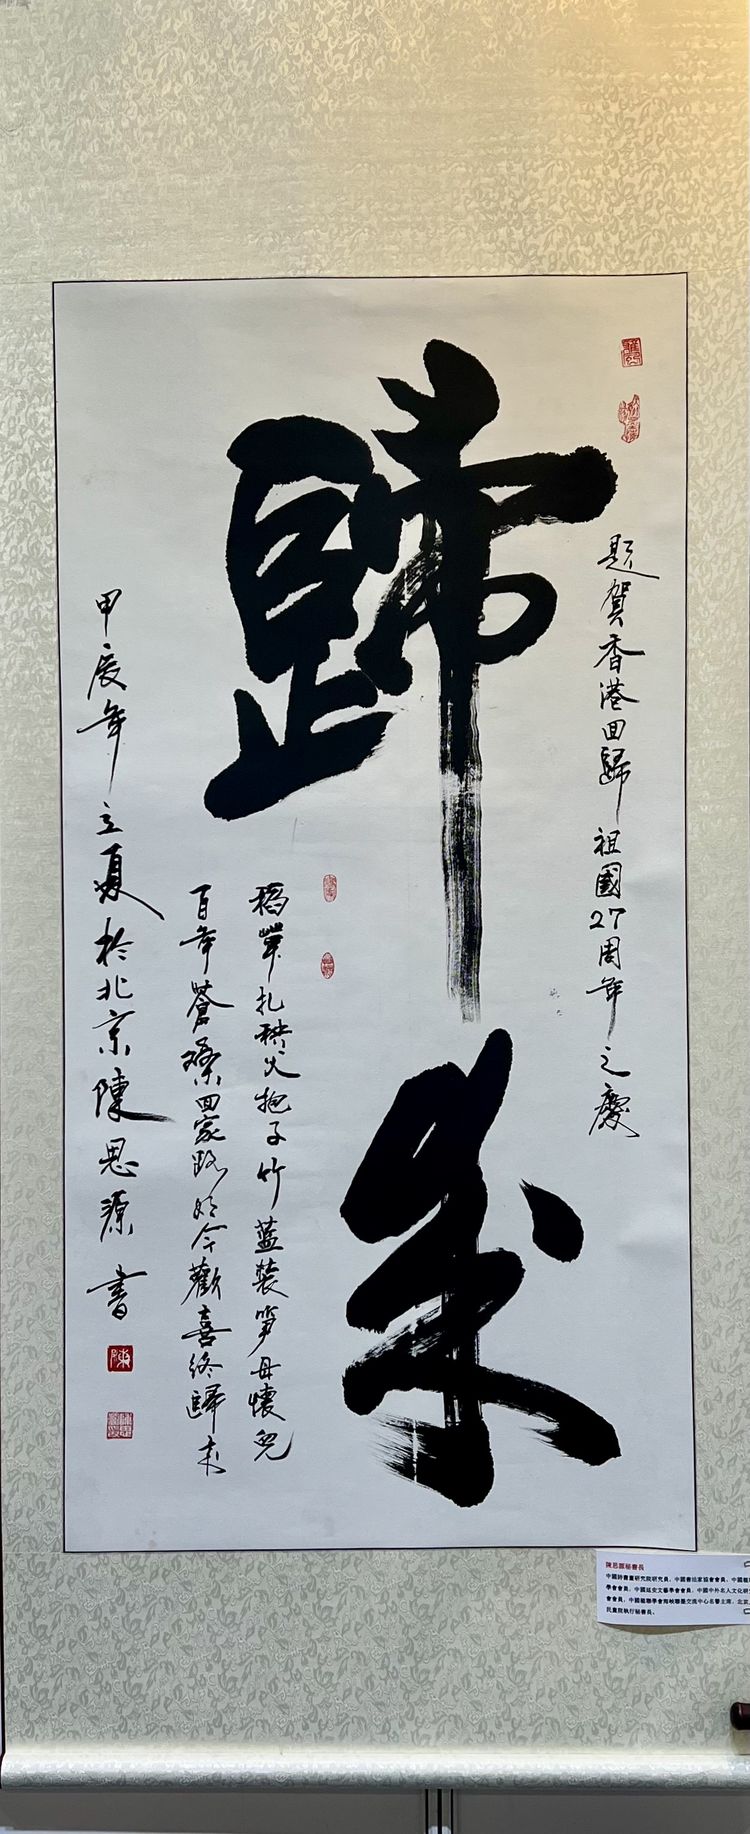 題賀香港回歸祖國27周年之慶
歸來
稻草扎秧父抱子竹藍裝笋母懷兒
百年蒼桑回家路如今歡喜終歸来
甲辰年立夏於北京陳思源書
陳
陳思源秘書長
中國詩書畫研究院研究員、中國書法家協會會員、中國楹
學會會員、中國延安文藝學會會員、中國中外名人文化研
會會員、中國楹聯學會海峽聯墨交流中心名譽主席、北京
民畫院執行秘書長。